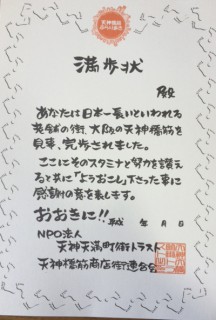 満歩状
殿
あなたは日本一長いといわれる
老舗の街、大阪の天神橋筋を
見事、完歩されました。
ここにそのスタミナと努力を讃え
ると共に「ようおこし」下さった事に
感謝の意を表します。
おおきに!! 平成 年 月 日
NPO法人
天神天満町街トラスト
天神橋筋商店街連合会